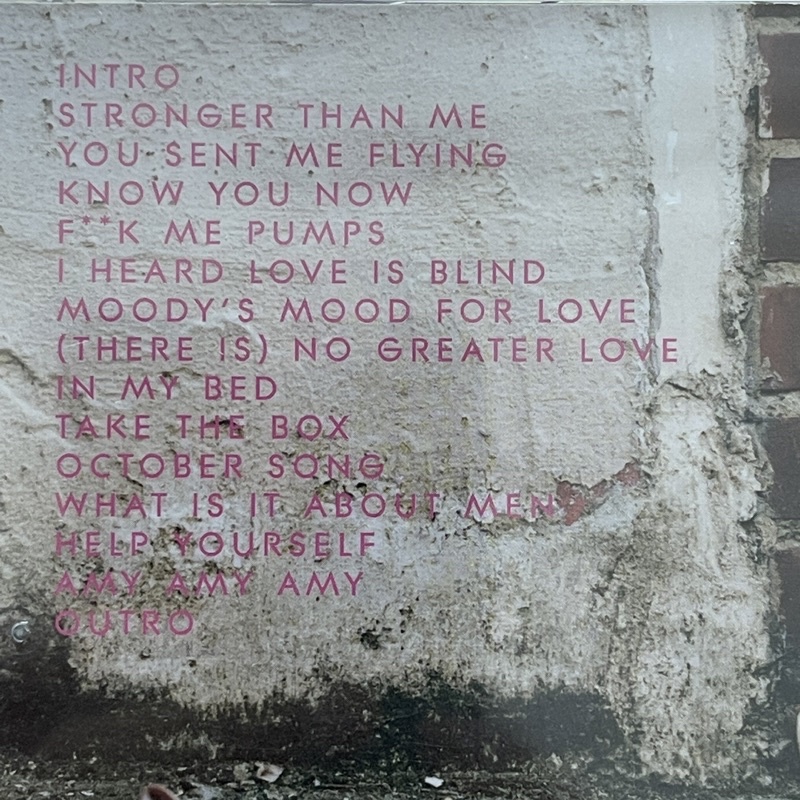 INTRO
STRONGER THAN ME
YOU SENT ME FLYING
KNOW YOU NOW
F**K ME PUMPS
I HEARD LOVE IS BLIND
MOODY'S MOOD FOR LOVE
(THERE IS) NO GREATER LOVE
IN MY BED
TAKE THE BOX
OCTOBER SONG
WHAT IS IT ABOUT MEN
HELP YOURSELF
AMY AMY AMY
OUTRO